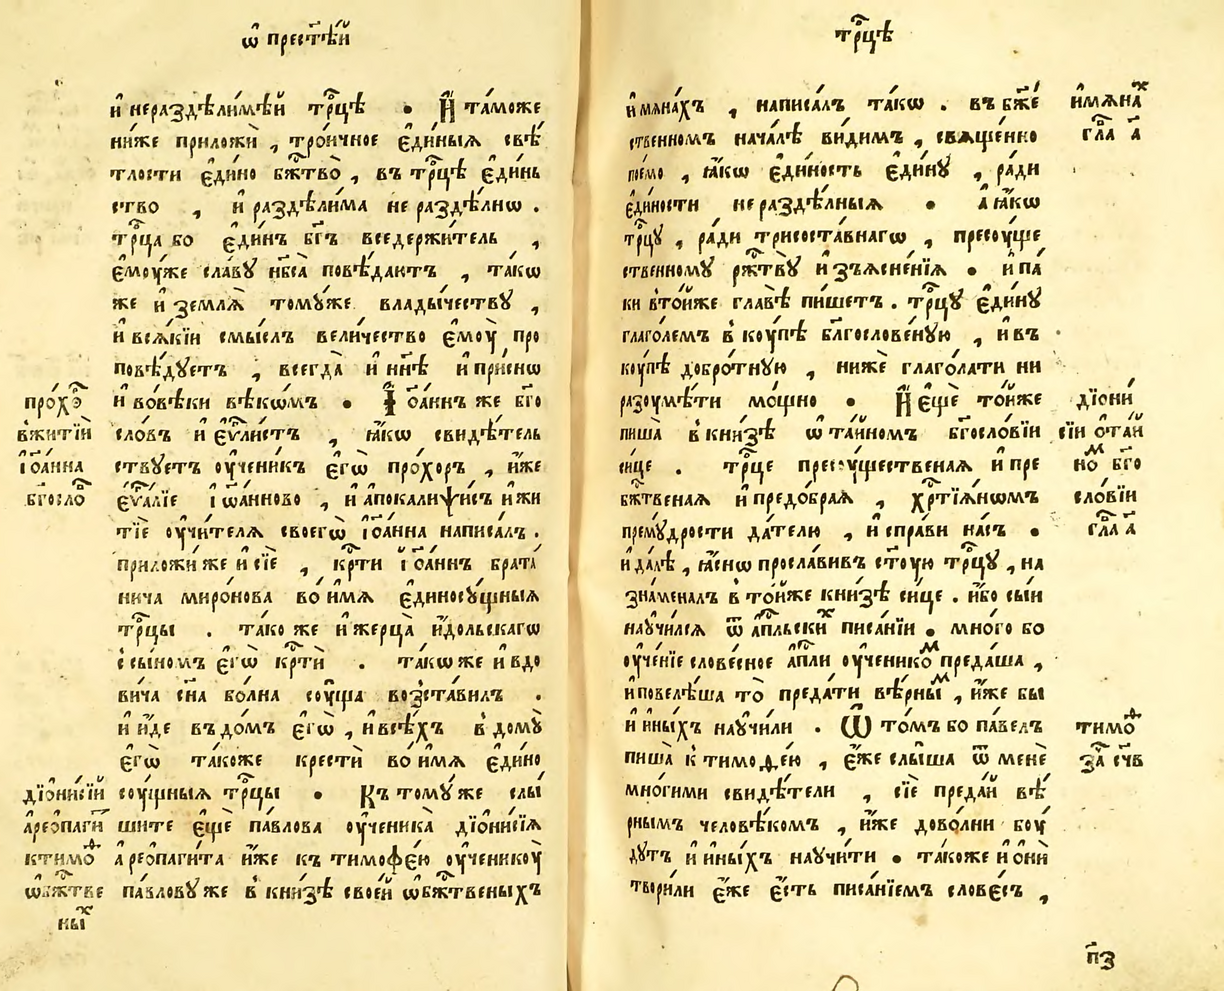 ѡ҃ прест҃ѣй
и҆ нераздѣ́лимѣй тр҃цѣ . И҆ та́може
ни́же приложѝ , тро́ичное є҆ди́ныѧ свѣ́
тлости є҆ди́но бж҃тво̀ , въ тр҃цѣ є҆ди́нь
ство , и҆ раздѣ́лима не раздѣ́лнѡ .
тр҃ца бо є҆ди́нъ бг҃ъ вседержи́тель ,
є҆моу́же сла́вꙋ нб҃са̀ повѣ́даютъ , та́кѡ
же и҆ землѧ̀ томꙋ́же влады́чествꙋ ,
и҆ всѧ́кїи смы́слъ вели́чество є҆моу̀ про
повѣ́дꙋетъ , всегда̀ и҆ нн҃ѣ и҆ при́снѡ
и҆ во́вѣки вѣкѡ́мъ . І҆ѡа́ннъ же бг҃о
сло́въ и҆ є҆ѵⷢ҇ли́стъ , ꙗ҆́кѡ свидѣ́тель
ствꙋетъ оу҆чени́къ є҆гѡ̀ про́хоръ , и҆́же
є҆ѵⷢ҇лїе і҆ѡа́нново , и҆ а҆пока́лиѱисъ и҆ жи
тїѐ оу҆чи́телѧ своегѡ̀ і҆ѡа́нна написа́лъ .
приложи́ же и҆ сїѐ , кр҃ти і҆ѡа́ннъ брата́
нича миро́нова во и҆́мѧ є҆диносꙋ́щныѧ
тр҃цы . та́ко же и҆ жерца̀ и҆́дольскагѡ
с сы́номъ є҆гѡ̀ кр҃тѝ . та́кѡже и҆ вдо
ви́ча сн҃а бо́лна соу́ща возста́вилъ .
и҆ и҆́де въ до́мъ є҆гѡ̀ , и҆ всѣ́хъ в дому̀
є҆гѡ̀ та́коже кре́сти во и҆́мѧ є҆ди́но
соу́щныѧ тр҃цы . Къ томꙋ́ же слы́
шите є҆щѐ па́влова оу҆ченика̀ дїони́сїѧ
а҆реопаги́та и҆́же къ тимоѳе́ю оу҆ченикоу̀
па́влову же в кни́зѣ свое́й ѡ҆бж҃твеныхъ
про́хоⷬ҇
вжитїѝ
і҆ѡа́нна
бг҃осло
дїони́сїй
а҆реопаги́
ктимоⷴ
ѡ҆бж҃тве
ныⷯ
тр҃цѣ
и҆мѧна́хъ , написа́лъ та́кѡ . въ бж҃е́
ственномъ нача́лѣ ви́димъ , свѧще́нно
пое́мо , ꙗ҆́кѡ є҆ди́ность є҆ди́нꙋ , ра́ди
є҆ди́ности не раздѣ́лныѧ . а҆ ꙗ҆́кѡ
тр҃цꙋ , ра́ди трисоста́внагѡ , пресоу́ще
ственномꙋ рж҃твꙋ̀ и҆зъѧсне́нїѧ . и҆ па́
ки в то́йже главѣ̀ пи́шетъ . тр҃цꙋ є҆ди́нꙋ
глаго́лемъ в коу́пѣ бл҃гослове́ную , и҆ въ
коу́пѣ добро́тную , ниже́ глаго́лати ни
разоумѣ́ти мо́щно . И҆ є҆щѐ то́йже
пиша̀ в кни́зѣ ѡ҆ та́йномъ бг҃осло́вїи
си́це . тр҃це пресꙋ́щественаѧ и҆ пре
бж҃твеная и҆ предо́браѧ , хр҃тїѧ́нѡмъ
премꙋ́дрости да́телю , и҆спра́ви на́съ .
и҆ да́лѣ , ꙗ҆́снѡ просла́вивъ ст҃оую тр҃цꙋ , на
знамена́лъ в то́йже кни́зѣ си́це . и҆́бо сы́и
наꙋчи́лсѧ ѿ а҆пл҃ьскиⷯ писа́нїи . мно́го бо
оу҆че́нїе слове́сное а҆пл҃и оу҆ченико́ⷨ преда́ша ,
и҆ повелѣ́ша то̀ преда́ти вѣ́рныⷨ , и҆́же бы
и҆ и҆ны́хъ наꙋчи́ли . Ѿ то́мъ бо па́велъ
пиша̀ к тимоѳе́ю , є҆́же слы́ша ѿ менѐ
мно́гими свидѣ́тели , сїѐ преда́й вѣ́
рнымъ человѣ́комъ , и҆́же дово́лни боу́
дꙋтъ и҆ и҆ны́хъ наꙋчи́ти . та́коже и҆ о҆нѝ
твори́ли є҆́же є҆́сть писа́нїемъ слове́съ ,
и҆́мѧнаⷯ
гл҃а а҃
дїони́
сїи о҆та́и
ноⷨ бг҃о
сло́вїи
гл҃а а҃
тимоⷴ
за҃ сч҃в
п҃з